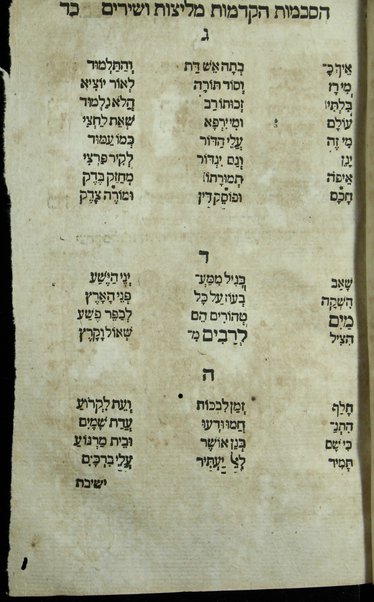 הסכמות הקדמות מליצות ושירים כד
ג
אֵיךְ כָּ־ בְתָה אֵשׁ דַּת וְהַתַּלְמוּד
מִי רָז וְסוֹד תּוֹרָה לְאוֹר יוֹצִיא
בִּלְתִּי זְכוּתוֹ רַב הֲלֹא נִלְמוּד
עוֹלָם וּמִי יִרְפָּא שְׁאֵת לַחְצִי
מִי זֶה עֲלֵי הַדּוֹר כְּמוֹ עַמּוּד
יָגֵן וְגַם יִגְדּוֹר לְקִיר פִּרְצִי
אֵיפֹה תְּמוּרָתוֹ מְחַזֵּק בֶּדֶק
חָכָם וּפוֹסֵק דִּין וּמוֹרֶה צֶדֶק
ד
שְׁאַב בְּגִיל מִמַּעַ־ יְנֵי הַיֶּשַׁע
הַשְׁקֵה בְּעוֹז עַל כָּל פְּנֵי הָאָרֶץ
מַיִם טְהוֹרִים הֵם לְכַפֵּר פֶּשַׁע
הִצִּיל לְרַבִּים מִ־ שְׁאוֹל וָקֶרֶץ
ה
חָלַף זְמַן לִבְכּוֹת וְעֵת לִקְרוֹעַ
הִתְנַ־ חֲמוּ וּדְעוּ עֲדַת שָׁמַיִם
כִּי שָׁם בְּגַן אוֹשֶׁר וּבֵית מַרְגּוֹעַ
תָּמִיד יַעְתִּיר עֲלֵי בִרְכַּיִם
ישיבת